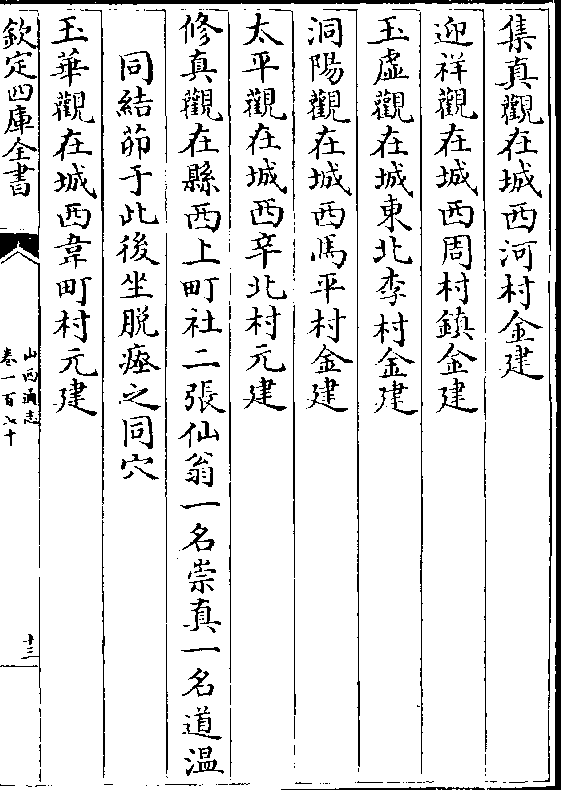 集真觀在城西河村金建
迎祥觀在城西周村鎮金建
玉虛觀在城東北李村金建
洞陽觀在城西馬平村金建
太平觀在城西辛北村元建
修真觀在縣西上町社二張仙翁一名崇真一名道温
同結茆于此後坐脱瘞之同穴
玉華觀在城西韋町村元建
欽定四庫全書
山西通志
卷一百七十
十三